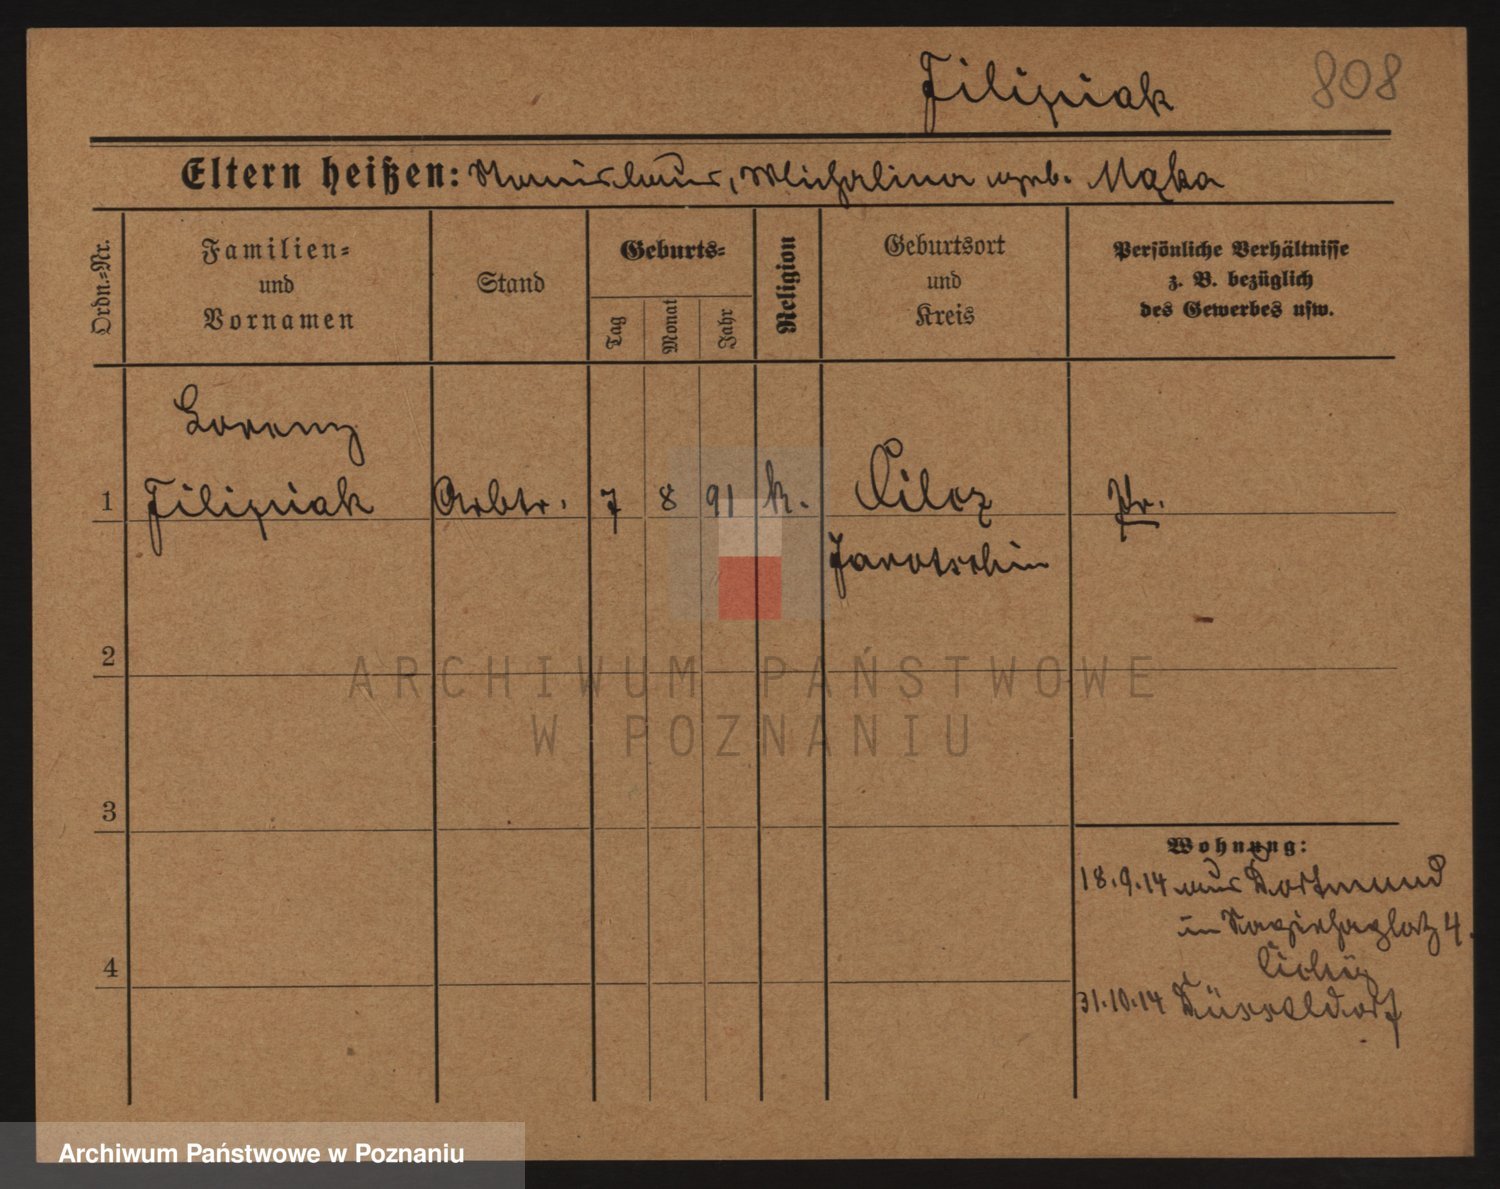 Filipiak 808
Eltern heißen: Stanislaus, Michalina geb. Mąka
Ordn.-Nr.
Familien-
und
Vornamen
Stand
Geburts-
Tag
Monat
Jahr
Religion
Geburtsort
und
Kreis
Persönliche Verhältnisse
z. B. bezüglich
des Gewerbes usw.
Lorenz
1 Filipiak Arbtr. 7 8 91 k. Cilcz Pr.
Jarotschin
2
3
4
Wohnung:
18.9.14 aus Dortmund
in 4.
31.10.14 Düsseldorf
ARCHIWUM PAŃSTWOWE
W POZNANIU
Archiwum Państwowe w Poznaniu